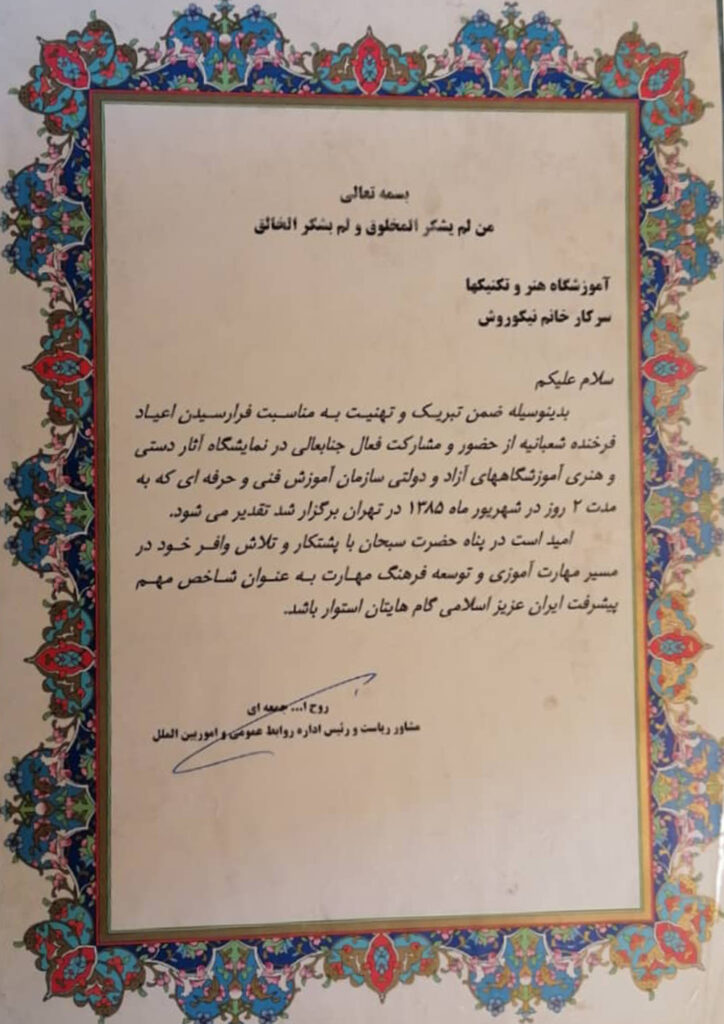 بسمه تعالی
من لم یشکر المخلوق و لم یشکر الخالق
آموزشگاه هنر و تکنیکها
سرکار خانم نیکوروش
سلام علیکم
بدینوسیله ضمن تبریک و تهنیت به مناسبت فرارسیدن اعیاد
فرخنده شعبانیه از حضور و مشارکت فعال جنابعالی در نمایشگاه آثار دستی
و هنری آموزشگاههای آزاد و دولتی سازمان آموزش فنی و حرفه ای که به
مدت ۲ روز در شهریور ماه ۱۳۸۵ در تهران برگزار شد تقدیر می شود.
امید است در پناه حضرت سبحان با پشتکار و تلاش وافر خود در
مسیر مهارت آموزی و توسعه فرهنگ مهارت به عنوان شاخص مهم
پیشرفت ایران عزیز اسلامی گام هایتان استوار باشد.
روح ا... جمعه ای
مشاور ریاست و رئیس اداره روابط عمومی و اموربین الملل